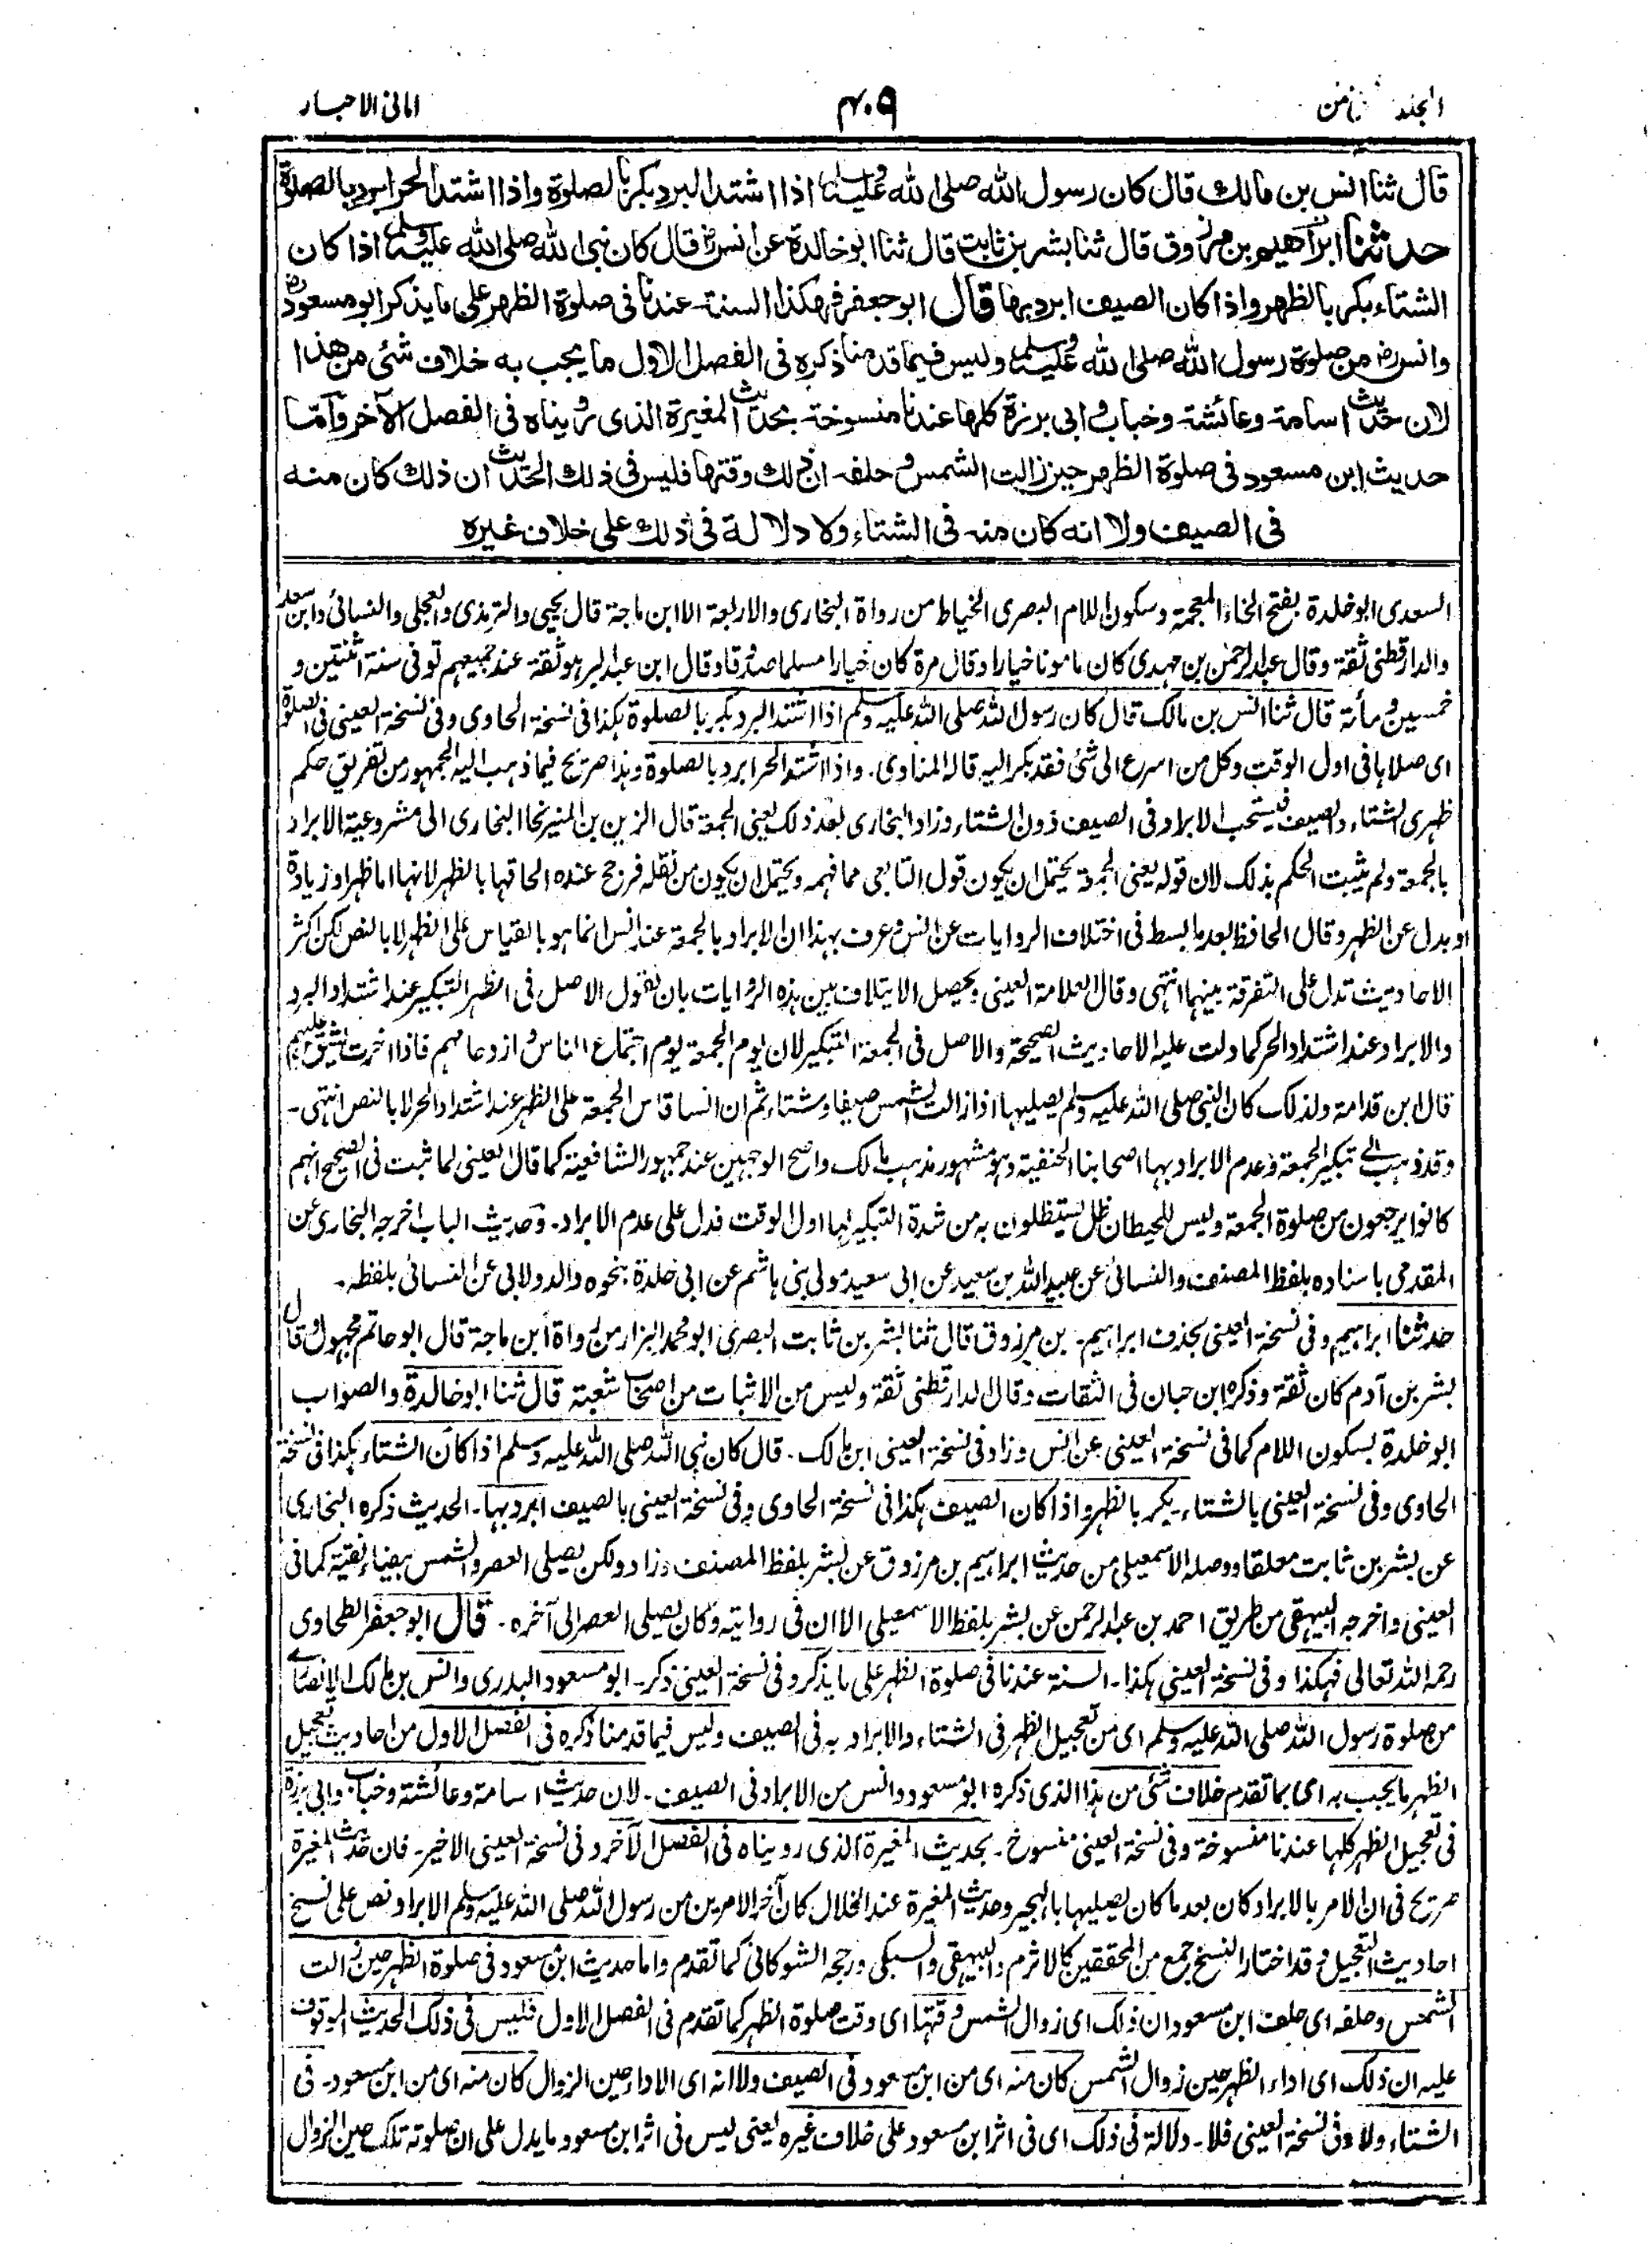 المجلد الثامن
۴۰۹
امانی الاحبار
قال ثنا انس بن مالك قال كان رسول الله صلى الله عليه وسلم اذا اشتد البرد بكر بالصلوة واذا اشتد الحر ابرد بالصلوة
حدثنا ابراهيم بن مرزوق قال ثنا بشر بن ثابت قال ثنا ابو خالدة عن انس رض قال كان نبى الله صلى الله عليه وسلم اذا كان
الشتاء بكر بالظهر واذا كان الصيف ابرد بها قال ابو جعفر فهكذا السنة عندنا فى صلوة الظهر على ما يذكر ابو مسعود رض
وانس رض من صلوة رسول الله صلى الله عليه وسلم وليس فيما قدمنا ذكره فى الفصل الاول ما يجب به خلاف شئى من هذا
لان حديث اسامة وعائشة وخباب وابى برزة كلها عندنا منسوخة بحديث المغيرة الذى رويناه فى الفصل الآخر واما
حديث ابن مسعود فى صلوة الظهر حين زالت الشمس وحلفه ان ذلك وقتها فليس فى ذلك الحديث ان ذلك كان منه
فى الصيف ولا انه كان منه فى الشتاء ولا دلالة فى ذلك على خلاف غيره
السعدى ابو خلدة بفتح الخاء المعجمة وسكون اللام البصرى الخياط من رواة البخارى والاربعة الا ابن ماجة قال يحيى والترمذى والعجلى والنسائى وابن سعد
والدارقطنى ثقة وقال عبد الرحمن بن مهدى كان مامونا خيارا وقال مرة كان خيارا مسلما صدوقا وقال ابن عبد البر هو ثقة عند جميعهم توفى سنة اثنتين و
خمسين ومأنة قال ثنا انس بن مالك قال كان رسول الله صلى الله عليه وسلم اذا اشتد البرد بكر بالصلوة هكذا فى نسخة الحاوى وفى نسخة العينى فى الصلوة
اى صلاها فى اول الوقت وكل من اسرع الى شئى فقد بكر اليه قاله المناوى۔ واذا اشتد الحر ابرد بالصلوة وهذا صريح فيما ذهب اليه الجمهور من تفريق حكم
ظهرى الشتاء والصيف فيستحب الابراد فى الصيف دون الشتاء وزاد البخارى بعد ذلك يعنى الجمعة قال الزين بن المنير نحا البخارى الى مشروعية الابراد
بالجمعة ولم يثبت الحكم بذلك لان قوله يعنى الجمعة يحتمل ان يكون قول التابعى مما فهمه ويحتمل ان يكون من نقله فرجح عنده الحاقها بالظهر لانها اما ظهر او زيادة
او بدل عن الظهر وقال الحافظ بعد ما بسط فى اختلاف الروايات عن انس وعرف بهذا ان الابراد بالجمعة عند انس انما هو بالقياس على الظهر لا بالنص لكن اكثر
الاحاديث تدل على التفرقة بينهما انتهى وقال العلامة العينى ويحصل الايتلاف بين هذه الروايات بان نقول الاصل فى الظهر التبكير عند اشتداد البرد
والابراد عند اشتداد الحر كما دلت عليه الاحاديث الصحيحة والاصل فى الجمعة التبكير لان يوم الجمعة يوم اجتماع الناس وازدحامهم فاذا اخرت يشق عليهم
قال ابن قدامة ولذلك كان النبى صلى الله عليه وسلم يصليها اذا زالت الشمس صيفا وشتاء ثم ان انسا قاس الجمعة على الظهر عند اشتداد الحر لا بالنص انتهى۔
وقد ذهب الى تبكير الجمعة وعدم الابراد بها اصحابنا الحنفية وهو مشهور مذهب مالك واصح الوجهين عند جمهور الشافعية كما قال العينى لما ثبت فى الصحيح انهم
كانوا يرجعون من صلوة الجمعة وليس للحيطان ظل يستظلون به من شدة التبكير لها اول الوقت فدل على عدم الابراد۔ وحديث الباب اخرجه البخارى عن
المقدمى باسناده بلفظ المصنف والنسائى عن عبيد الله بن سعيد عن ابى سعيد مولى بنى هاشم عن ابى خلدة بنحوه والدولابى عن النسائى بلفظه۔
حدثنا ابراهيم وفى نسخة العينى بحذف ابراهيم۔ بن مرزوق قال ثنا بشر بن ثابت البصرى ابو محمد البزار من رواة ابن ماجة قال ابو حاتم مجهول وقال
بشر بن آدم كان ثقة وذكره ابن حبان فى الثقات وقال الدارقطنى ثقة وليس من الاثبات من اصحاب شعبة قال ثنا ابو خالدة والصواب
ابو خلدة بسكون اللام كما فى نسخة العينى عن انس وزاد فى نسخة العينى ابن مالك۔ قال كان نبى الله صلى الله عليه وسلم اذا كان الشتاء هكذا فى نسخة
الحاوى وفى نسخة العينى بالشتاء۔ بكر بالظهر واذا كان الصيف هكذا فى نسخة الحاوى وفى نسخة العينى بالصيف ابرد بها۔ الحديث ذكره البخارى
عن بشر بن ثابت معلقا ووصله الاسمعيلى من حديث ابراهيم بن مرزوق عن بشر بلفظ المصنف وزاد ولكن يصلى العصر والشمس بيضاء نقية كما فى
العينى واخرجه البيهقى من طريق احمد بن عبد الرحمن عن بشر بلفظ الاسمعيلى الا ان فى روايته وكان يصلى العصر الى آخره۔ قال ابو جعفر الطحاوى
رحمه الله تعالى فهكذا وفى نسخة العينى هكذا۔ السنة عندنا فى صلوة الظهر على ما يذكر وفى نسخة العينى ذكر۔ ابو مسعود البدرى وانس بن مالك الانصارى
من صلوة رسول الله صلى الله عليه وسلم اى من تعجيل الظهر فى الشتاء والابراد به فى الصيف وليس فيما قدمنا ذكره فى الفصل الاول من احاديث تعجيل
الظهر ما يجب به اى بما تقدم خلاف شئى من هذا الذى ذكره ابو مسعود وانس من الابراد فى الصيف۔ لان حديث اسامة وعائشة وخباب وابى برزة
فى تعجيل الظهر كلها عندنا منسوخة وفى نسخة العينى منسوخ۔ بحديث المغيرة الذى رويناه فى الفصل الآخر وفى نسخة العينى الاخير۔ فان حديث المغيرة
صريح فى ان الامر بالابراد كان بعد ما كان يصليها بالهجير وحديث المغيرة عند الخلال كان آخر الامرين من رسول الله صلى الله عليه وسلم الابراد نص على نسخ
احاديث التعجيل وقد اختار النسخ جمع من المحققين كالاثرم والبيهقى والسبكى ورجحه الشوكانى كما تقدم واما حديث ابن مسعود فى صلوة الظهر حين زالت
الشمس وحلفه اى حلف ابن مسعود ان ذلك اى زوال الشمس وقتها اى وقت صلوة الظهر كما تقدم فى الفصل الاول فليس فى ذلك الحديث الموقوف
عليه ان ذلك اى اداء الظهر حين زوال الشمس كان منه اى من ابن مسعود فى الصيف ولا انه اى الاداء حين الزوال كان منه اى من ابن مسعود۔ فى
الشتاء ولا وفى نسخة العينى فلا۔ دلالة فى ذلك اى فى اثر ابن مسعود على خلاف غيره يعنى ليس فى اثر ابن مسعود ما يدل على ان صلوته تلك حين الزوال